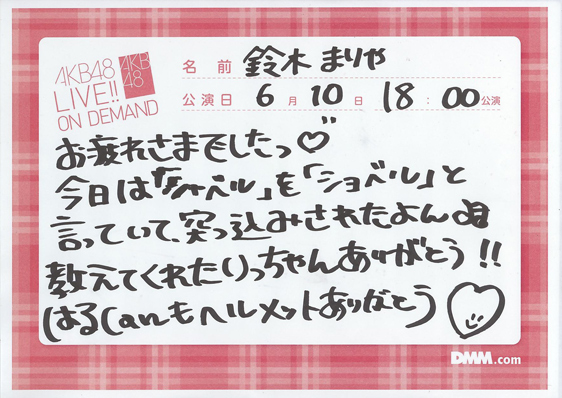 AKB48
LIVE!!
ON DEMAND
AKB
48
名前 鈴木まりや
公演日 6月10日 18:00公演
お疲れさまでしたっ♡
今日は「シャベル」を「ショベル」と
言っていて、突っ込みされたよん
教えてくれたりっちゃんありがとう!!
はるCanもヘルメットありがとう
DMM.com